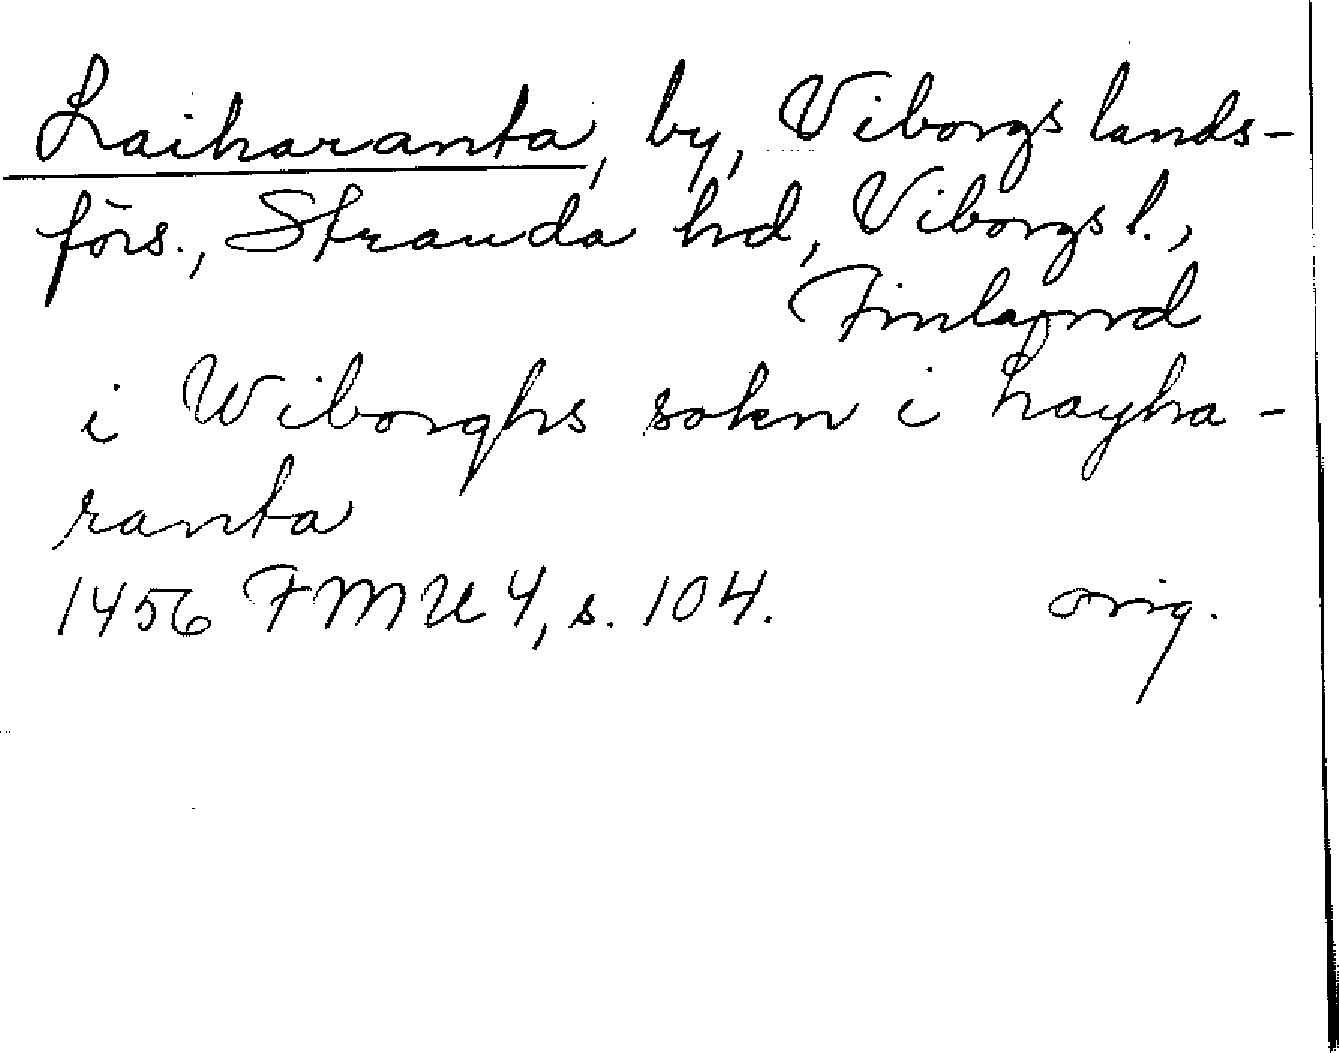 Laiharanta, by, Viborgs lands-
förs., Stranda hd, Viborgs l.,
Finland
i Wiborghs sokn i Layha-
ranta
1456 FMU 4, s. 104. orig.